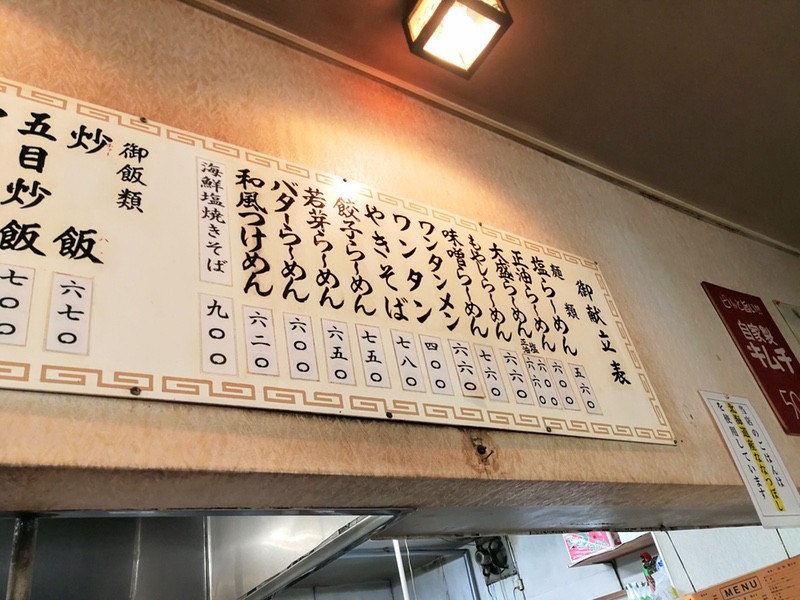 御献立表
麺類
塩らーめん 五六〇
正油らーめん 六〇〇
大盛らーめん 塩 六六〇 正油 六六〇
もやしらーめん 六六〇
味噌らーめん 七六〇
ワンタンメン 六六〇
ワンタン 四〇〇
やきそば 七八〇
餃子らーめん 七五〇
若芽らーめん 六五〇
バターらーめん 六〇〇
和風つけめん 六二〇
海鮮塩焼きそば 九〇〇
御飯類
炒飯 六七〇
五目炒飯 七〇〇
自家製
キムチ
50
当店のごはんは
北海道産ななつぼし
を使用しています
MENU